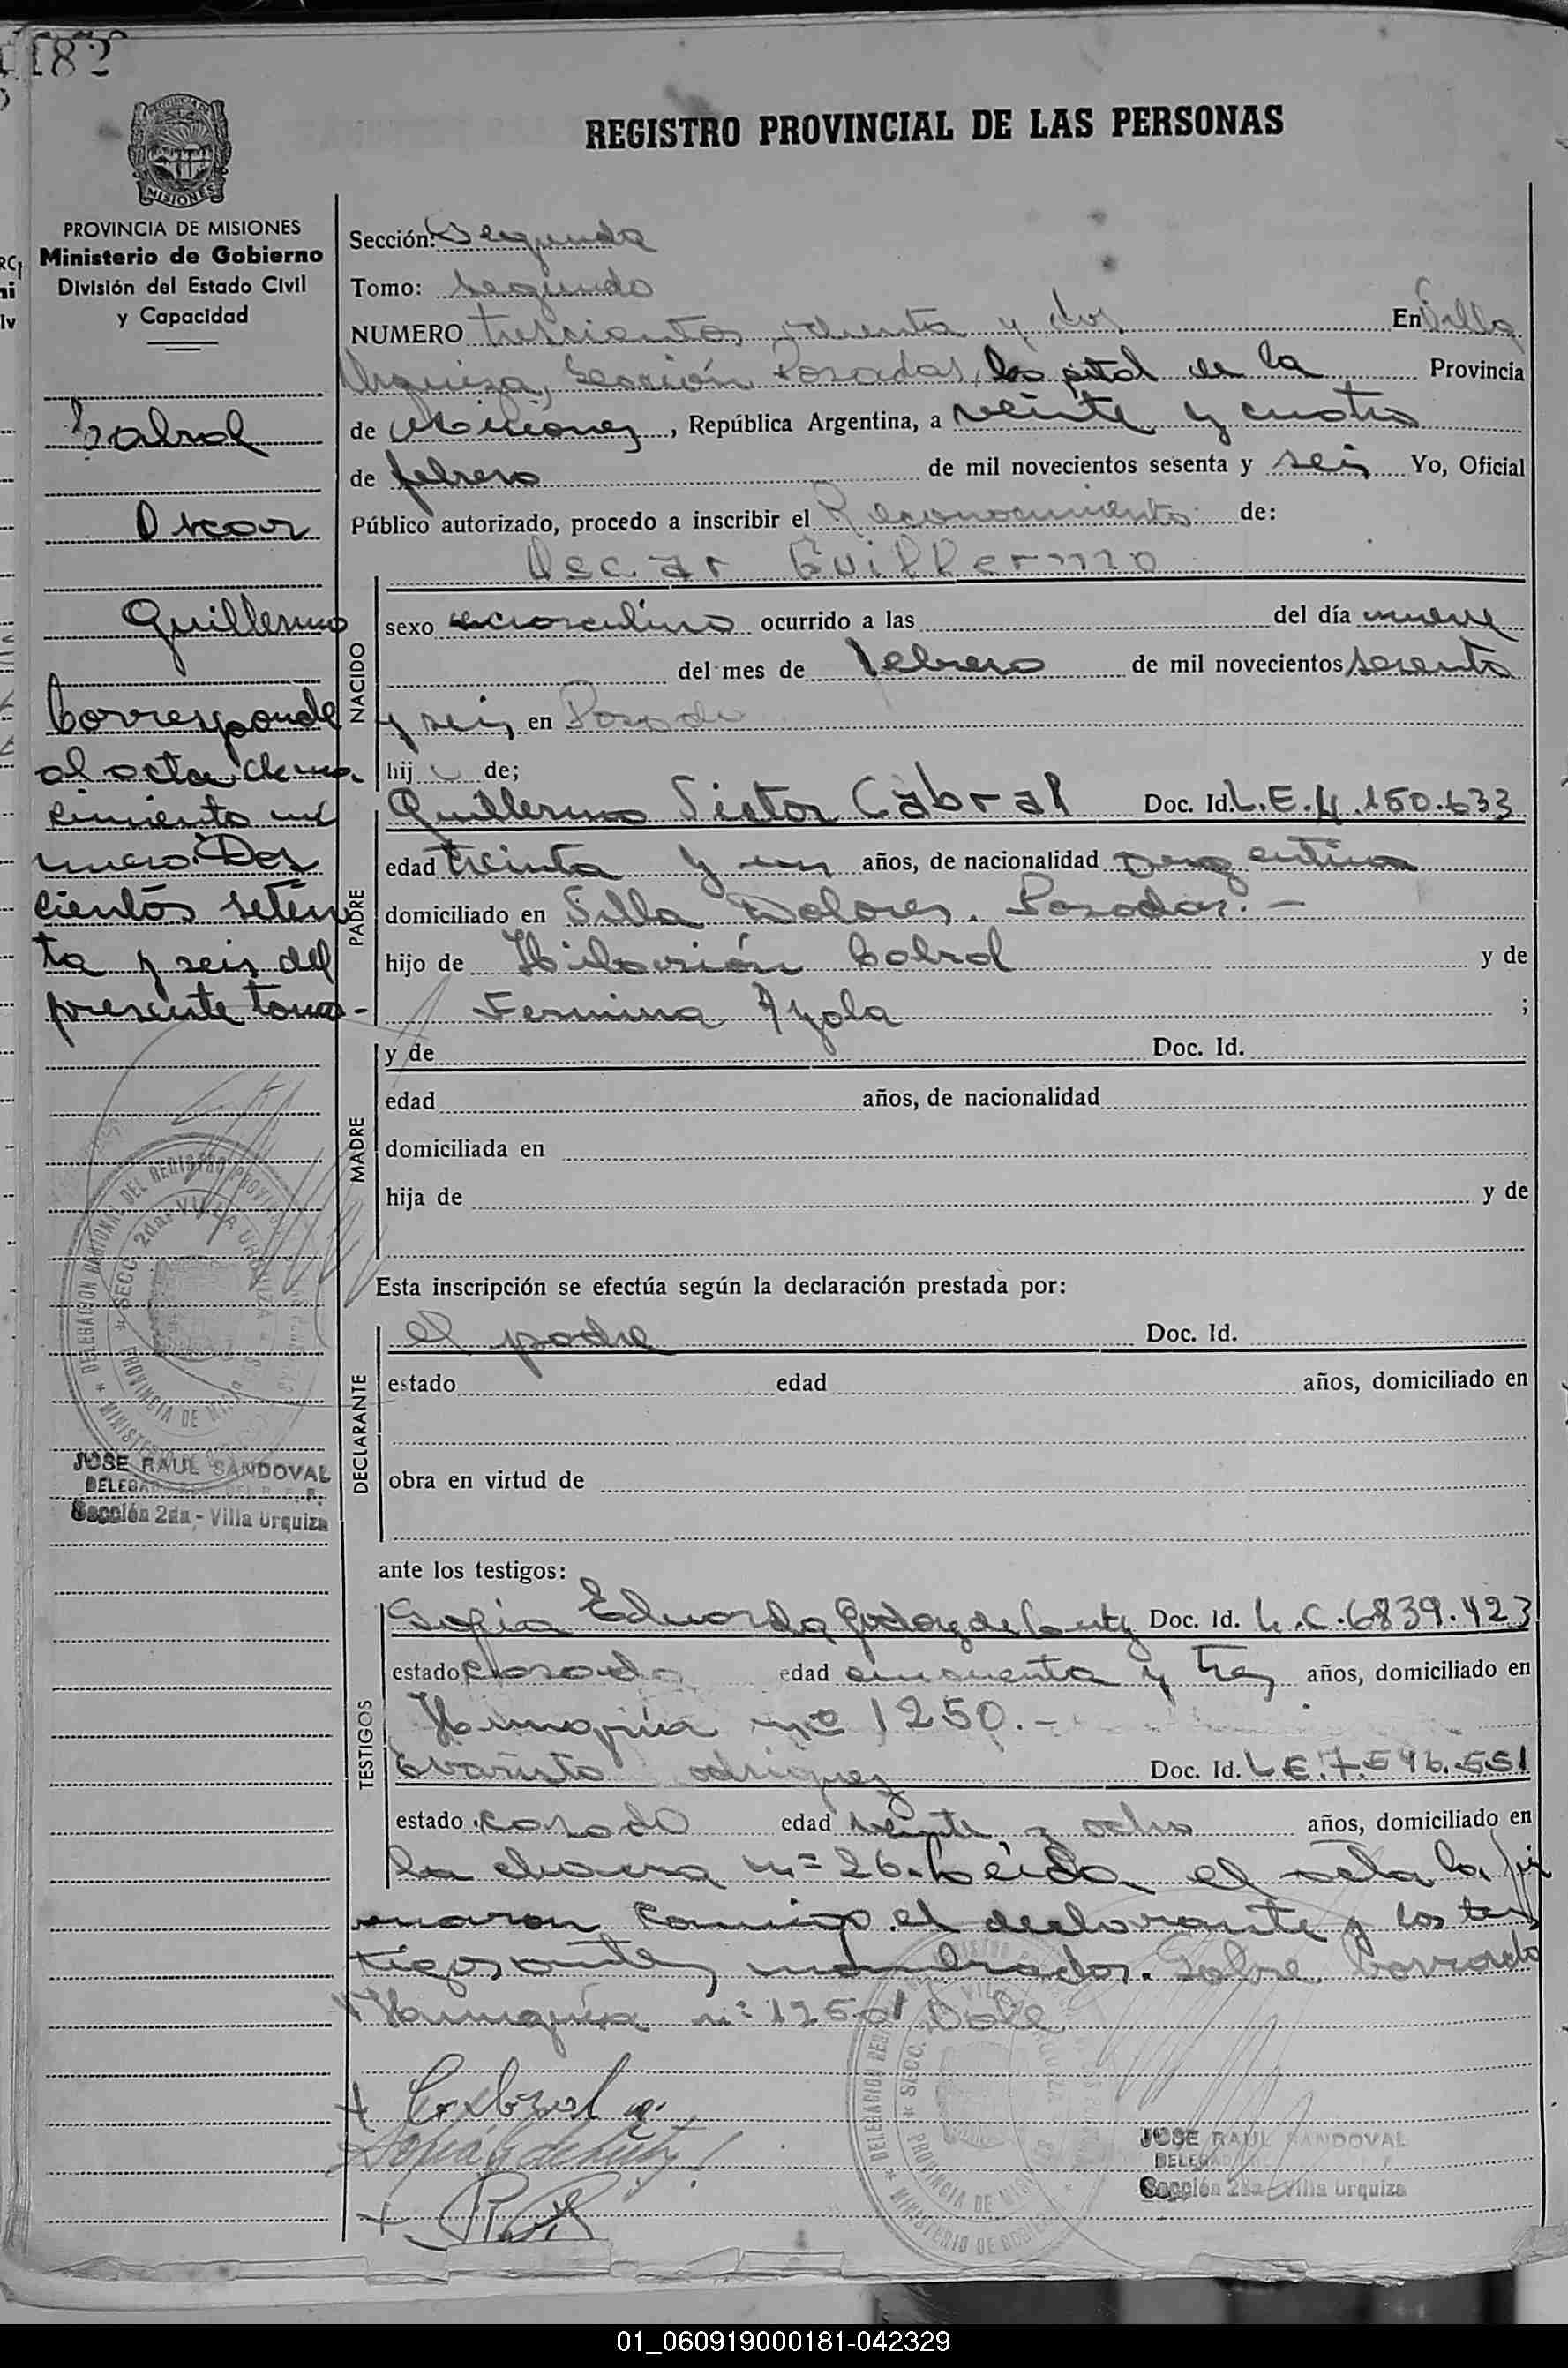 182
REGISTRO PROVINCIAL DE LAS PERSONAS
MISIONES
PROVINCIA DE MISIONES
Ministerio de Gobierno
División del Estado Civil
y Capacidad
Cabral
Oscar
Guillermo
Corresponde
al acta de na-
cimiento nú
mero Dos
cientos seten
ta y seis del
presente tomo-
JOSE RAUL SANDOVAL
Sección 2da - Villa Urquiza
Sección: Segunda
Tomo: Segundo
NUMERO trescientos ochenta y dos En Villa
Urquiza, Sección Posadas, Capital de la Provincia
de Misiones, República Argentina, a veinte y cuatro
de febrero de mil novecientos sesenta y seis Yo, Oficial
Público autorizado, procedo a inscribir el Reconocimiento de:
Oscar Guillermo
NACIDO
sexo masculino ocurrido a las del día nueve
del mes de febrero de mil novecientos sesenta
y seis en Posadas
hij o de;
PADRE
Guillermo Sistor Cabral Doc. Id. L.E.4.150.633
edad treinta y un años, de nacionalidad argentina
domiciliado en Villa Dolores. Posadas.-
hijo de Hilarión Cabral y de
Fermina Ayala ;
MADRE
y de Doc. Id.
edad años, de nacionalidad
domiciliada en
hija de y de
Esta inscripción se efectúa según la declaración prestada por:
DECLARANTE
el padre Doc. Id.
estado edad años, domiciliado en
obra en virtud de
ante los testigos:
TESTIGOS
Sofia Eduarda Godoy de Doc. Id. L.C.6839.423
estado casada edad cincuenta y tres años, domiciliado en
Hungría nº 1250.-
Evaristo Rodriguez Doc. Id. L.E.7.596.551
estado casado edad veinte y ocho años, domiciliado en
la chacra nº 26. Leída el acta la fir
maron conmigo el declarante y los tes
tigos antes nombrados. Sobre borrado
"Hungría nº 1250" Vale
+ Cabral
JOSE RAUL SANDOVAL
Sección 2da - Villa Urquiza
01_060919000181-042329